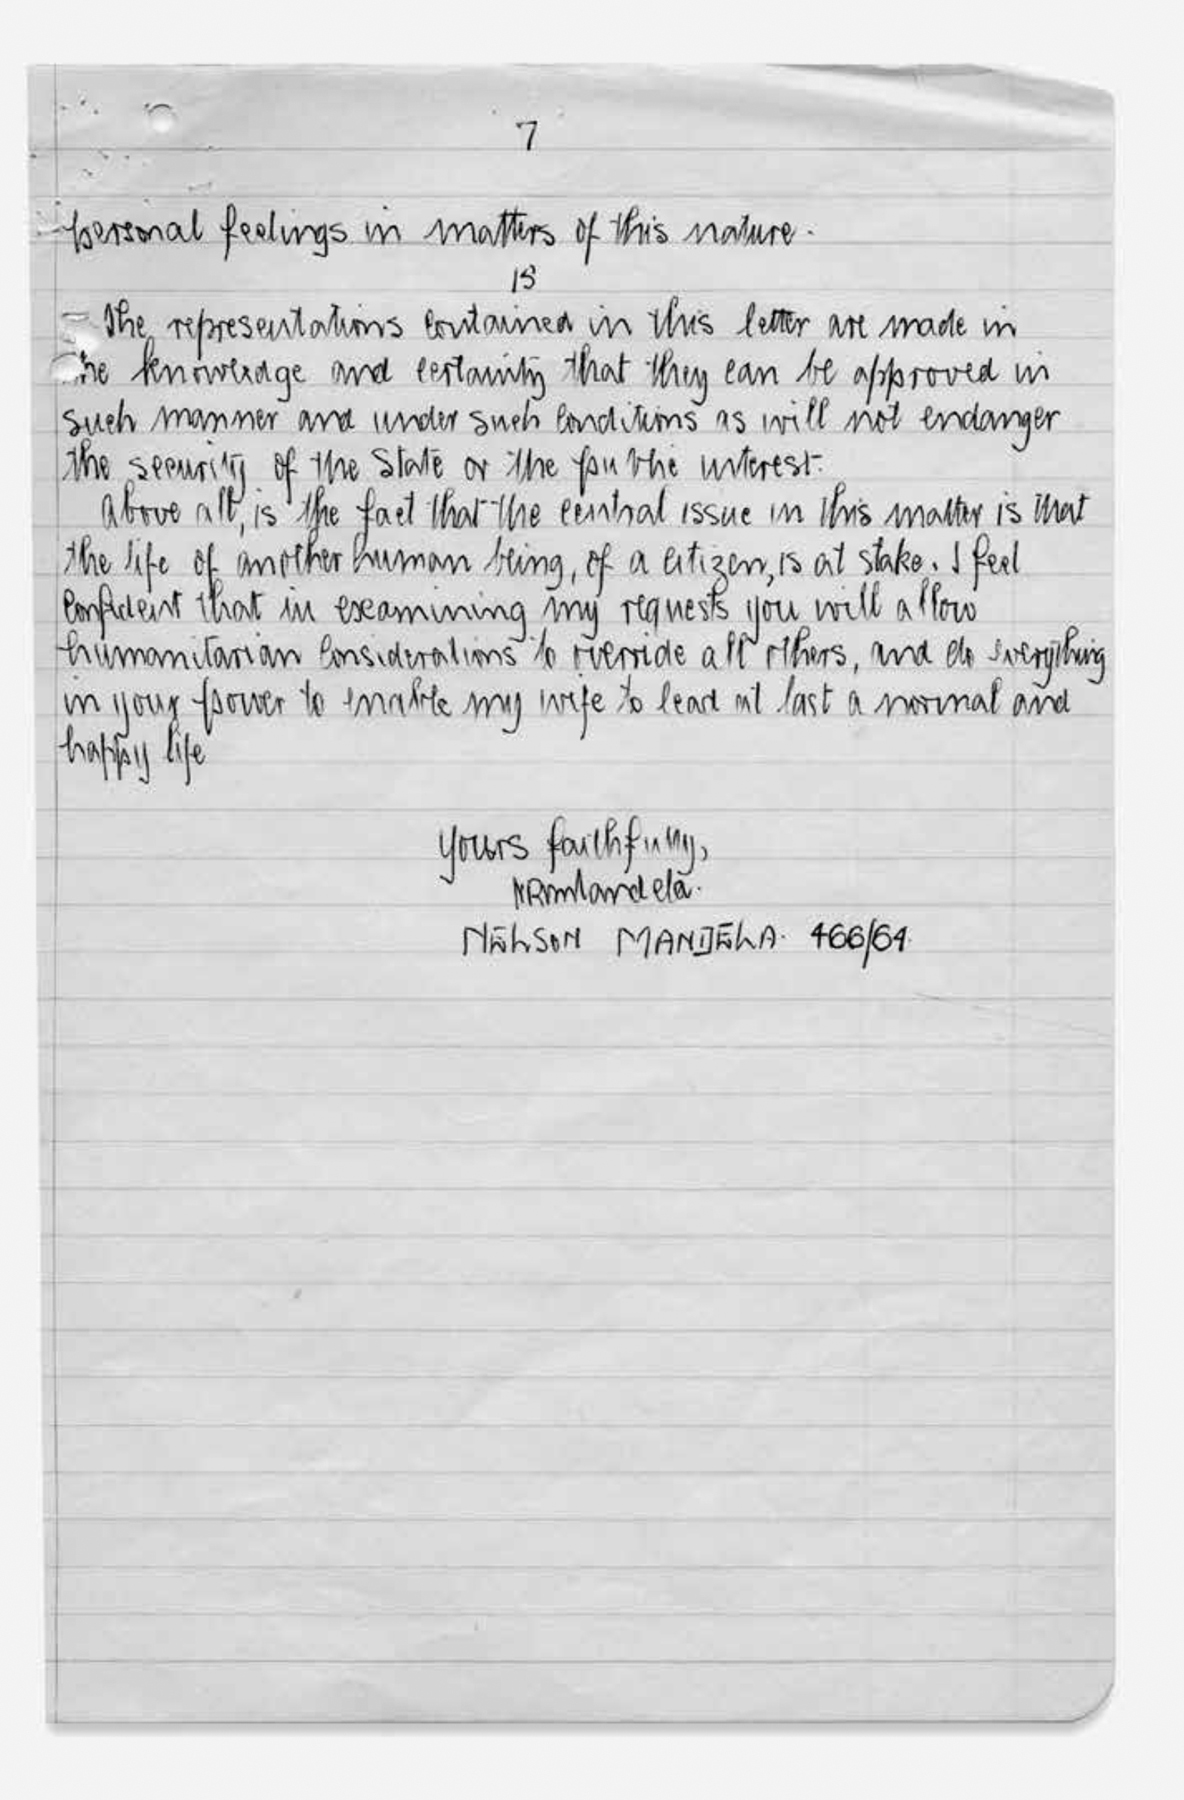 7
personal feelings in matters of this nature.
15
The representations contained in this letter are made in
the knowledge and certainity that they can be approved in
such manner and under such conditions as will not endanger
the security of the State or the public interest.
Above all, is the fact that the central issue in this matter is that
the life of another human being, of a citizen, is at stake. I feel
confident that in examining my requests you will allow
humanitarian considerations to override all others, and do everything
in your power to enable my wife to lead at last a normal and
happy life
Yours faithfully,
NRMandela.
NELSON MANDELA. 466/64.